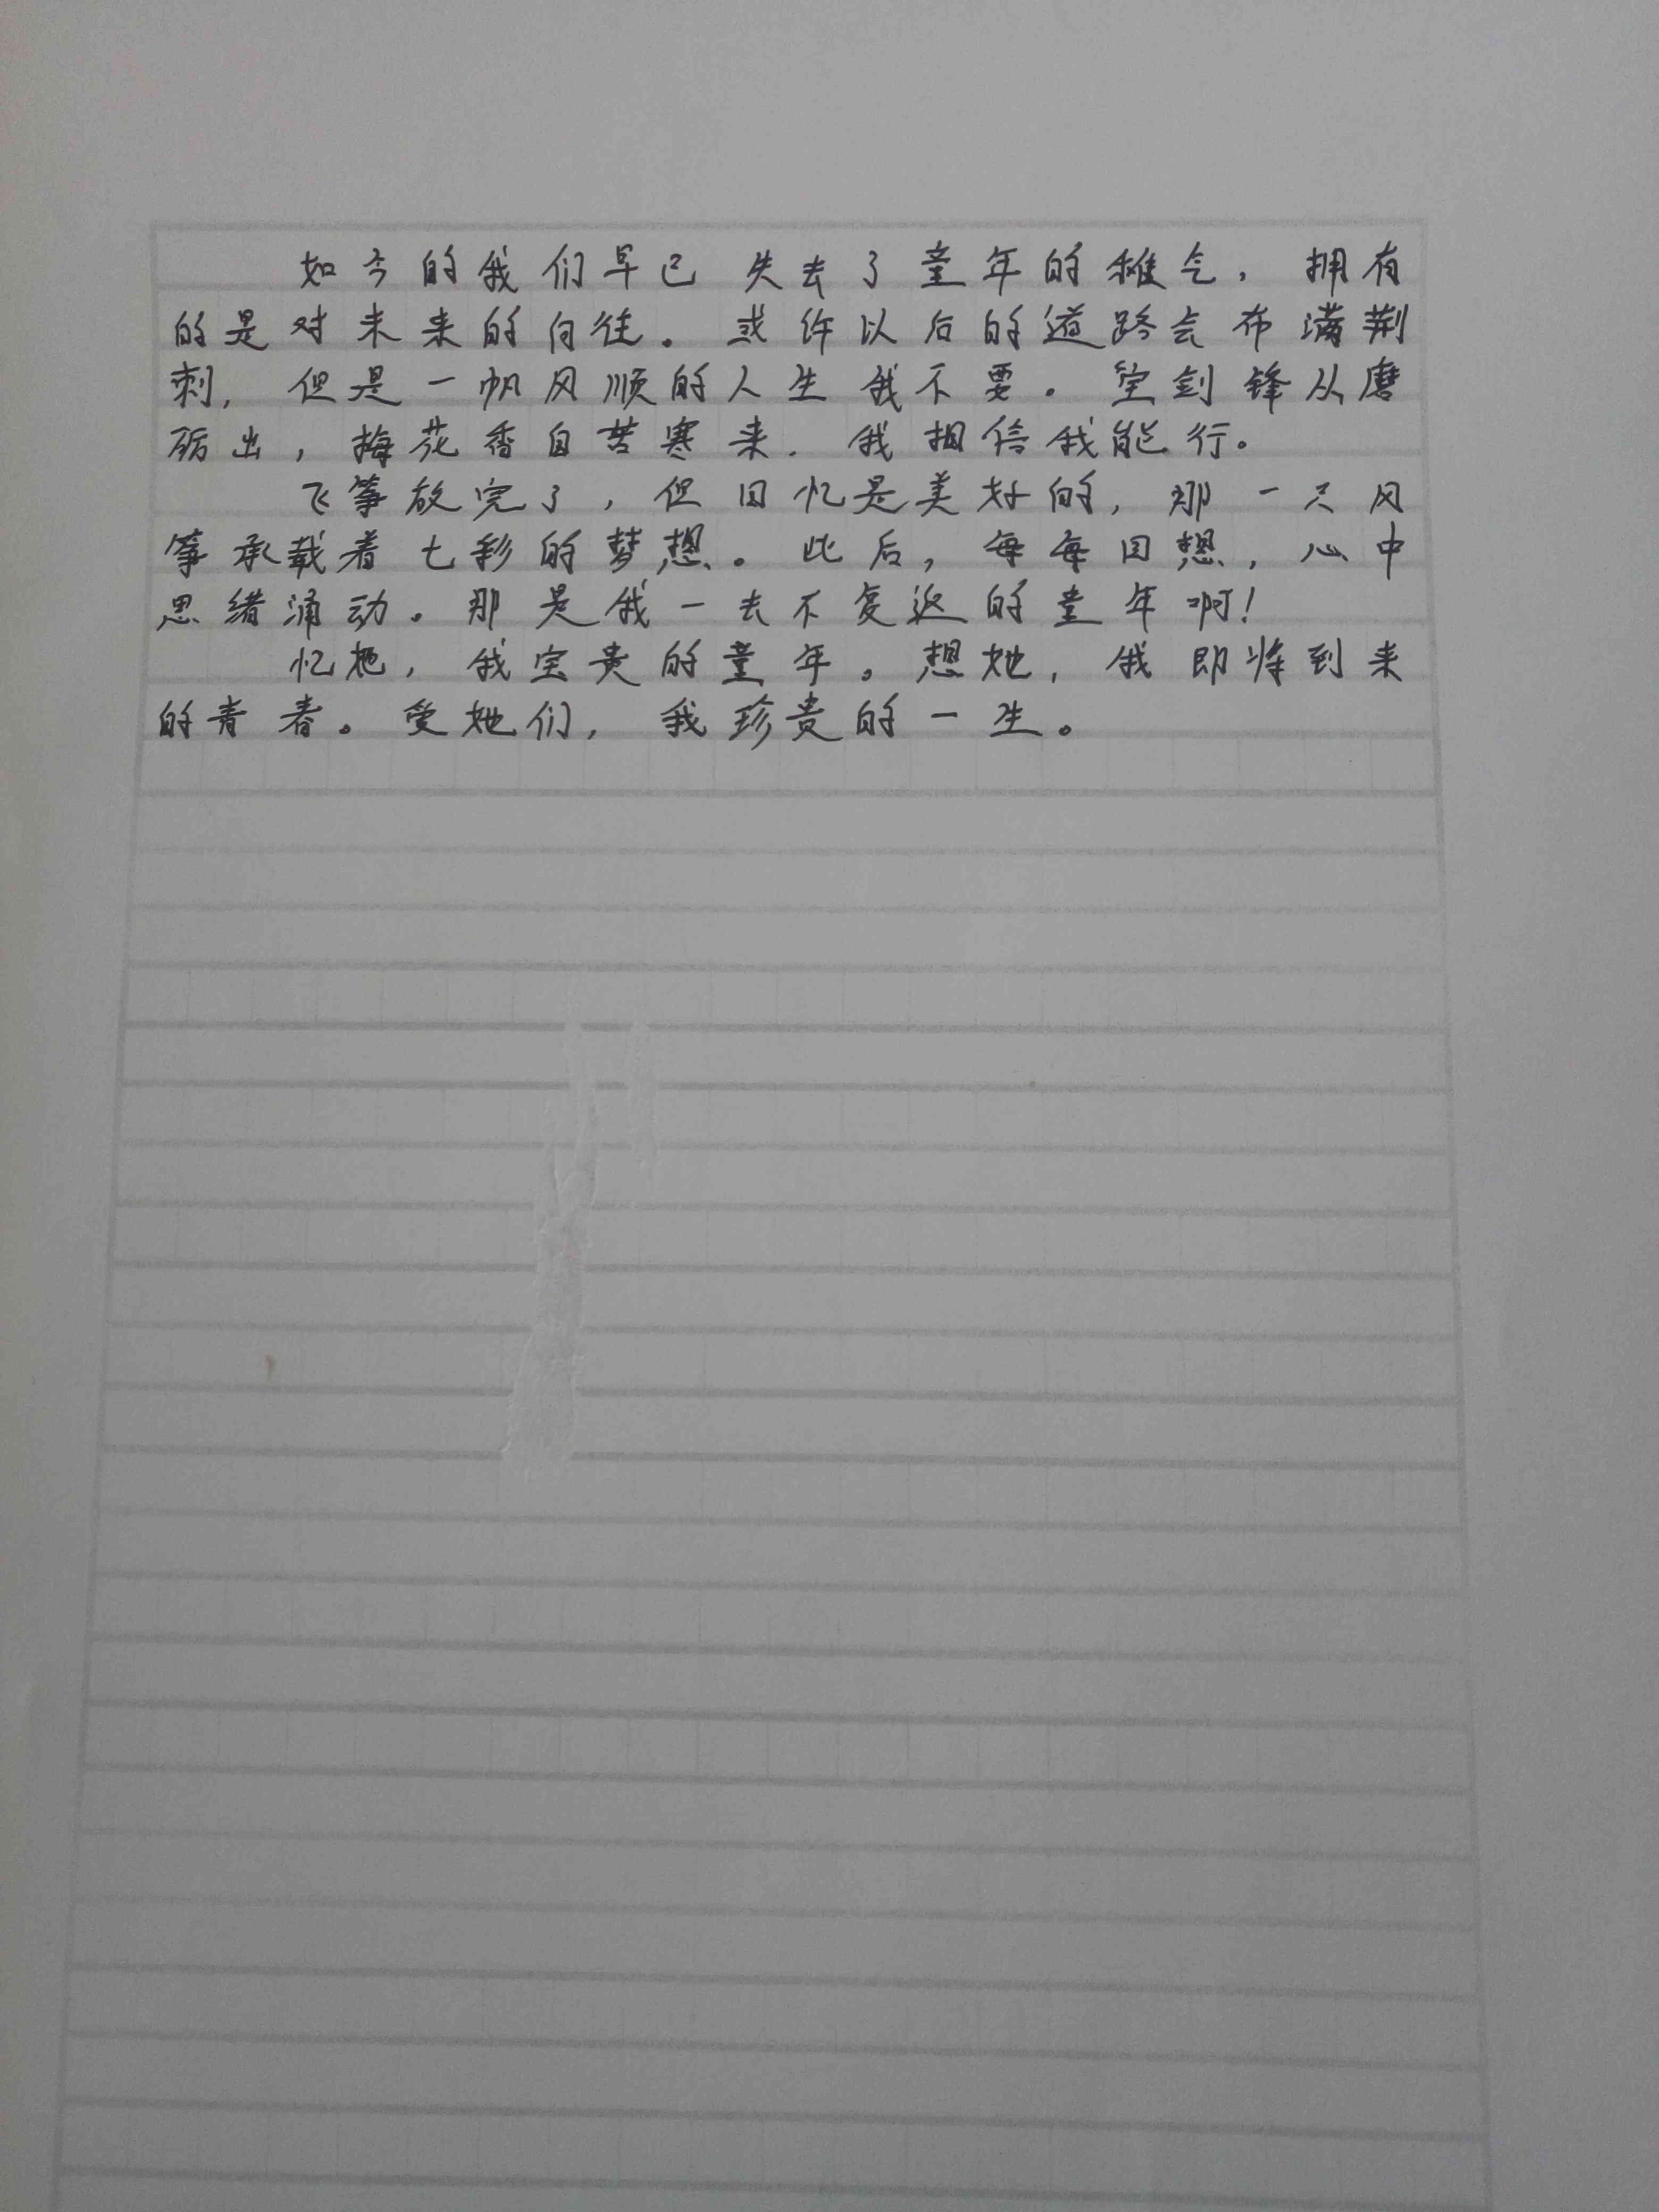 如今的我们早已失去了童年的稚气，拥有
的是对未来的向往。或许以后的道路会布满荆
刺，但是一帆风顺的人生我不要。宝剑锋从磨
砺出，梅花香自苦寒来．我相信我能行。
飞筝放完了，但回忆是美好的，那一只风
筝承载着七彩的梦想。此后，每每回想，心中
思绪涌动。那是我一去不复返的童年啊！
忆她，我宝贵的童年。想她，我即将到来
的青春。爱她们，我珍贵的一生。